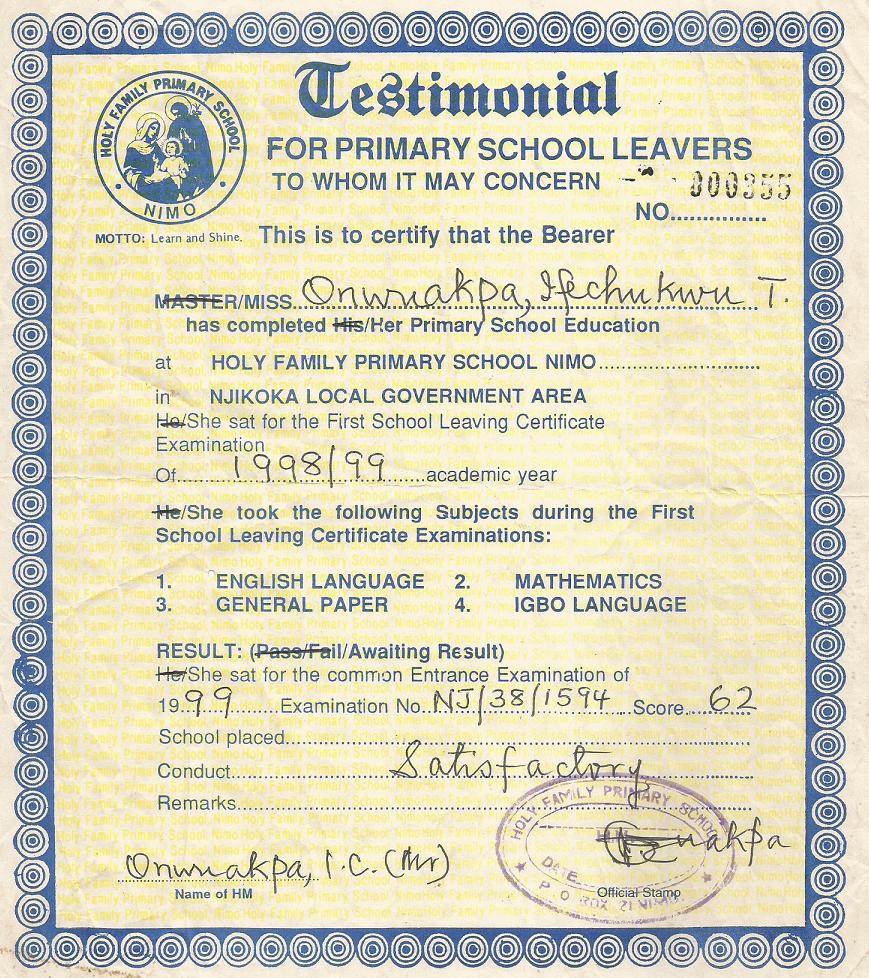 HOLY FAMILY PRIMARY SCHOOL
NIMO
MOTTO: Learn and Shine.
Testimonial
FOR PRIMARY SCHOOL LEAVERS
TO WHOM IT MAY CONCERN
000355
NO...............
This is to certify that the Bearer
MASTER/MISS Onwuakpa, Ifechukwu T.
has completed His/Her Primary School Education
at HOLY FAMILY PRIMARY SCHOOL NIMO
in NJIKOKA LOCAL GOVERNMENT AREA
He/She sat for the First School Leaving Certificate
Examination
Of 1998/99 academic year
He/She took the following Subjects during the First
School Leaving Certificate Examinations:
1. ENGLISH LANGUAGE 2. MATHEMATICS
3. GENERAL PAPER 4. IGBO LANGUAGE
RESULT: (Pass/Fail/Awaiting Result)
He/She sat for the common Entrance Examination of
1999 Examination No. NJ/38/1594 Score 62
School placed
Conduct Satisfactory
Remarks
HOLY FAMILY PRIMARY SCHOOL
DATE
Onwuakpa, I.C. (Mr)
Name of HM
Official Stamp